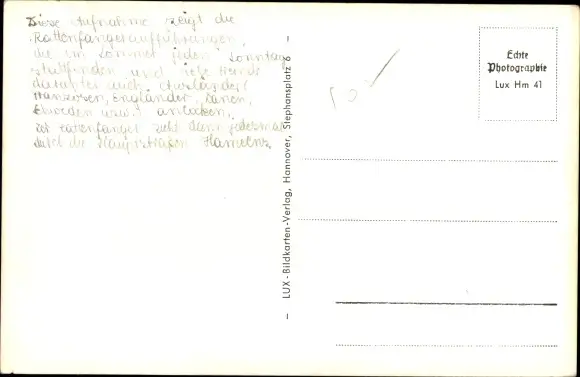 Diese Aufnahme zeigt die
Rattenfängeraufführungen,
die im Sommer jeden Sonntag
stattfinden und viele Fremde
darunter auch Ausländer
Franzosen, Engländer, Dänen,
Schweden usw. anlocken.
Der Rattenfänger zieht dann jedesmal
durch die Hauptstraßen Hamelns
LUX-Bildkarten-Verlag, Hannover, Stephansplatz 6
Echte
Photographie
Lux Hm 41